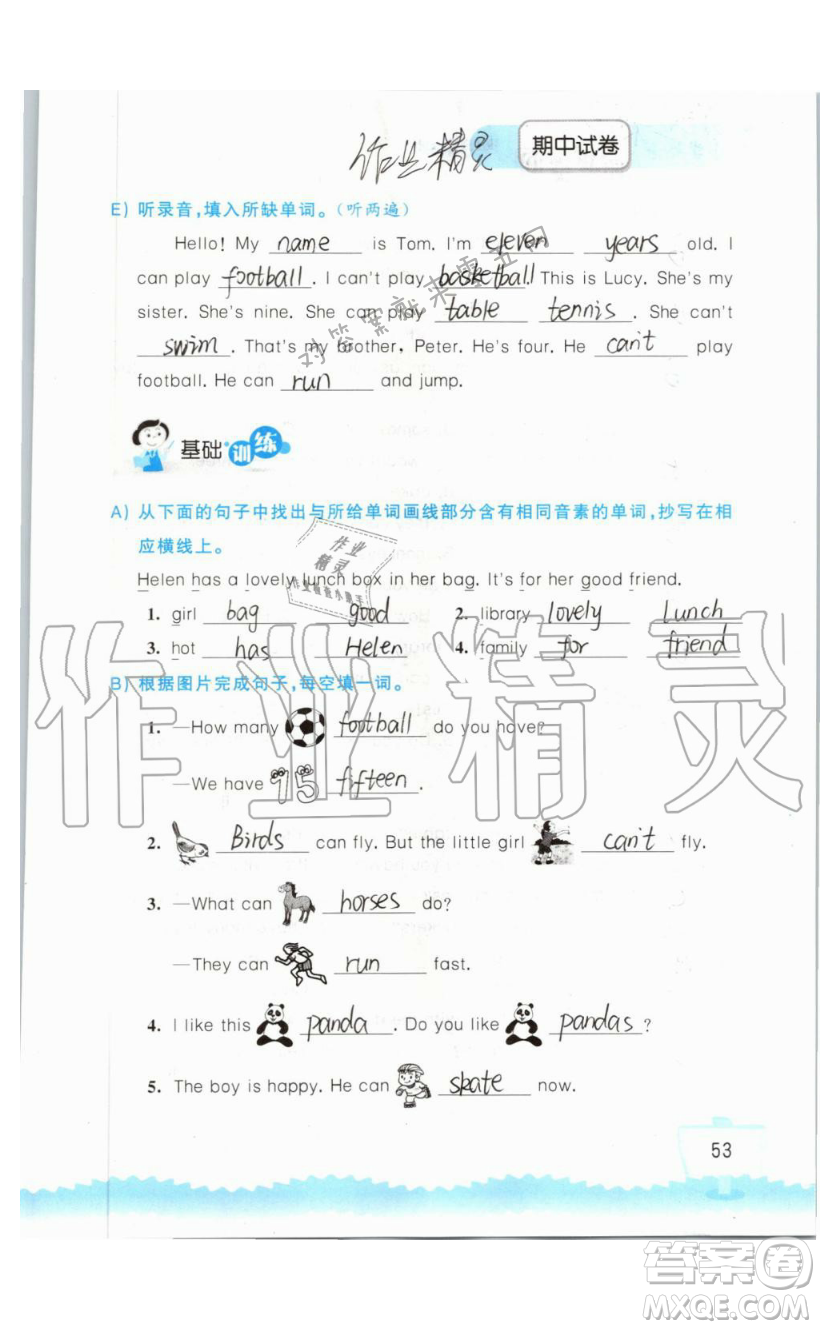 作业精灵
期中试卷
E) 听录音，填入所缺单词。（听两遍）
Hello! My name is Tom. I'm eleven years old. I
can play football. I can't play basketball! This is Lucy. She's my
sister. She's nine. She can play table tennis. She can't
swim. That's my brother, Peter. He's four. He can't play
football. He can run and jump.
对答案就来零五网
基础训练
A) 从下面的句子中找出与所给单词画线部分含有相同音素的单词，抄写在相
应横线上。
Helen has a lovely lunch box in her bag. It's for her good friend.
1. girl bag good 2. library lovely Lunch
3. hot has Helen 4. family for friend
作业
精灵
作业检查小助手
作业精灵
B) 根据图片完成句子，每空填一词。
1. —How many football do you have?
—We have 15 fifteen.
2. Birds can fly. But the little girl can't fly.
3. —What can horses do?
—They can run fast.
4. I like this panda. Do you like pandas?
5. The boy is happy. He can skate now.
53
答案圈
MXQE.COM